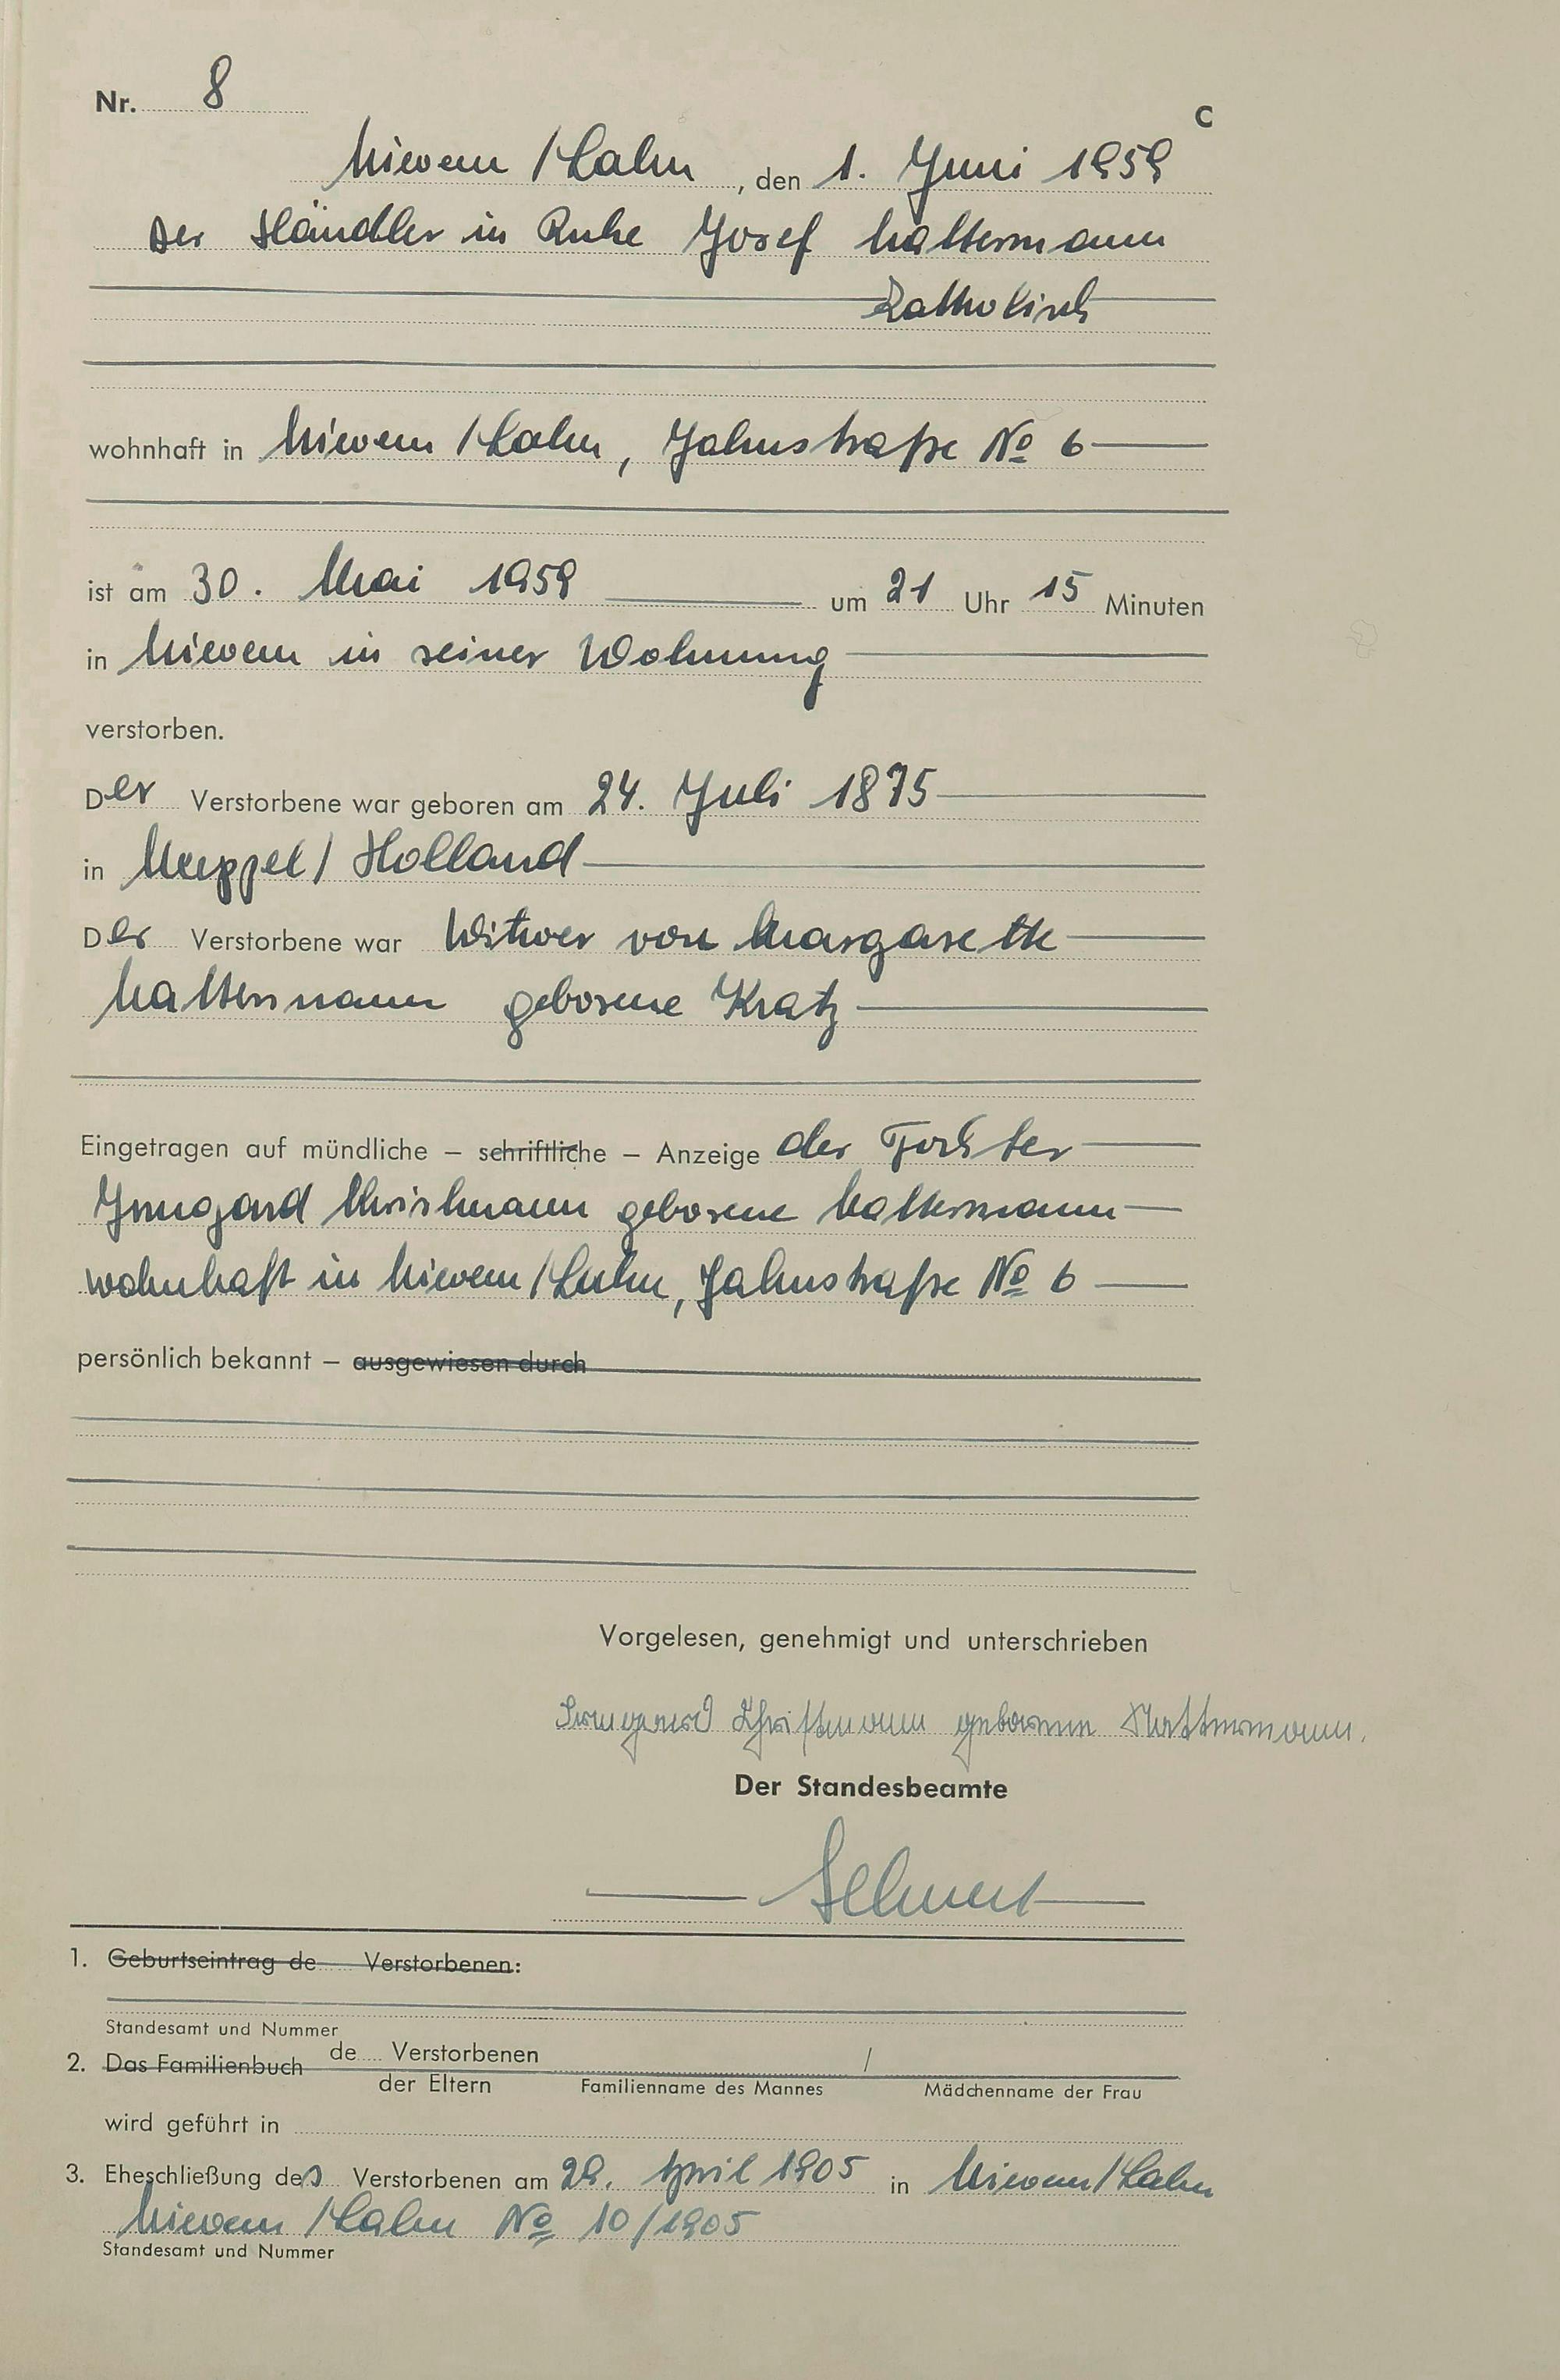 Nr. 8
C
Nievern / Lahn, den 1. Juni 1959
Der Händler in Ruhe Josef Nattermann
Katholisch
wohnhaft in Nievern / Lahn, Jahnstraße No 6
ist am 30. Mai 1959 um 21 Uhr 15 Minuten
in Nievern in seiner Wohnung
verstorben.
Der Verstorbene war geboren am 24. Juli 1875
in Meppel / Holland
Der Verstorbene war Witwer von Margarethe
Nattermann geborene Kratz
Eingetragen auf mündliche – schriftliche – Anzeige der Tochter
Irmgard Christmann geborene Nattermann
wohnhaft in Nievern / Lahn, Jahnstraße No 6
persönlich bekannt – ausgewiesen durch
Vorgelesen, genehmigt und unterschrieben
Irmgard Christmann geborene Nattermann.
Der Standesbeamte
1. Geburtseintrag de Verstorbenen:
Standesamt und Nummer
2. Das Familienbuch de Verstorbenen /
der Eltern Familienname des Mannes Mädchenname der Frau
wird geführt in
3. Eheschließung des Verstorbenen am 29. April 1905 in Nievern / Lahn
Nievern / Lahn No 10/1905
Standesamt und Nummer